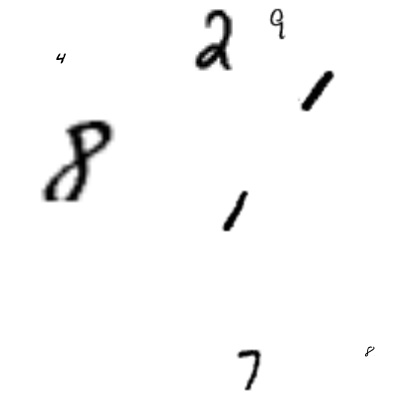 2 9
4
1
8
1
7
8